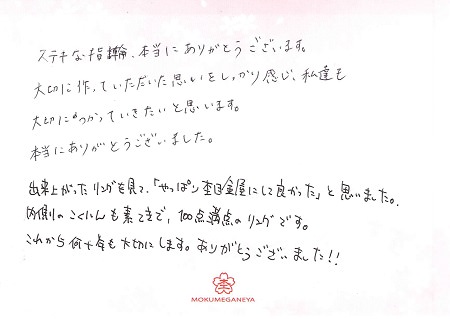 ステキな指輪、本当にありがとうございます。
大切に作っていただいた思いをしっかり感じ、私達も
大切につかっていきたいと思います。
本当にありがとうございました。
出来上がったリングを見て、「やっぱり杢目金屋にして良かった」と思いました。
内側のこくいんも素てきで、100点満点のリングです。
これから何十年も大切にします。ありがとうございました!!
MOKUMEGANEYA